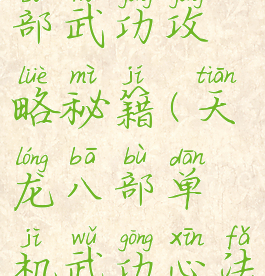 部武功攻
lüè mì jí tiān
略秘籍(天
lóng bā bù dān
龙八部单
jī wǔ gōng xīn fǎ
机武功心法